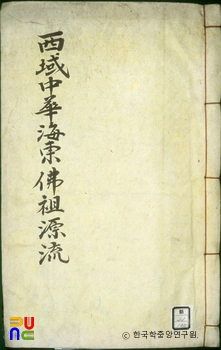 西域中華海東佛祖源流
© 한국학중앙연구원